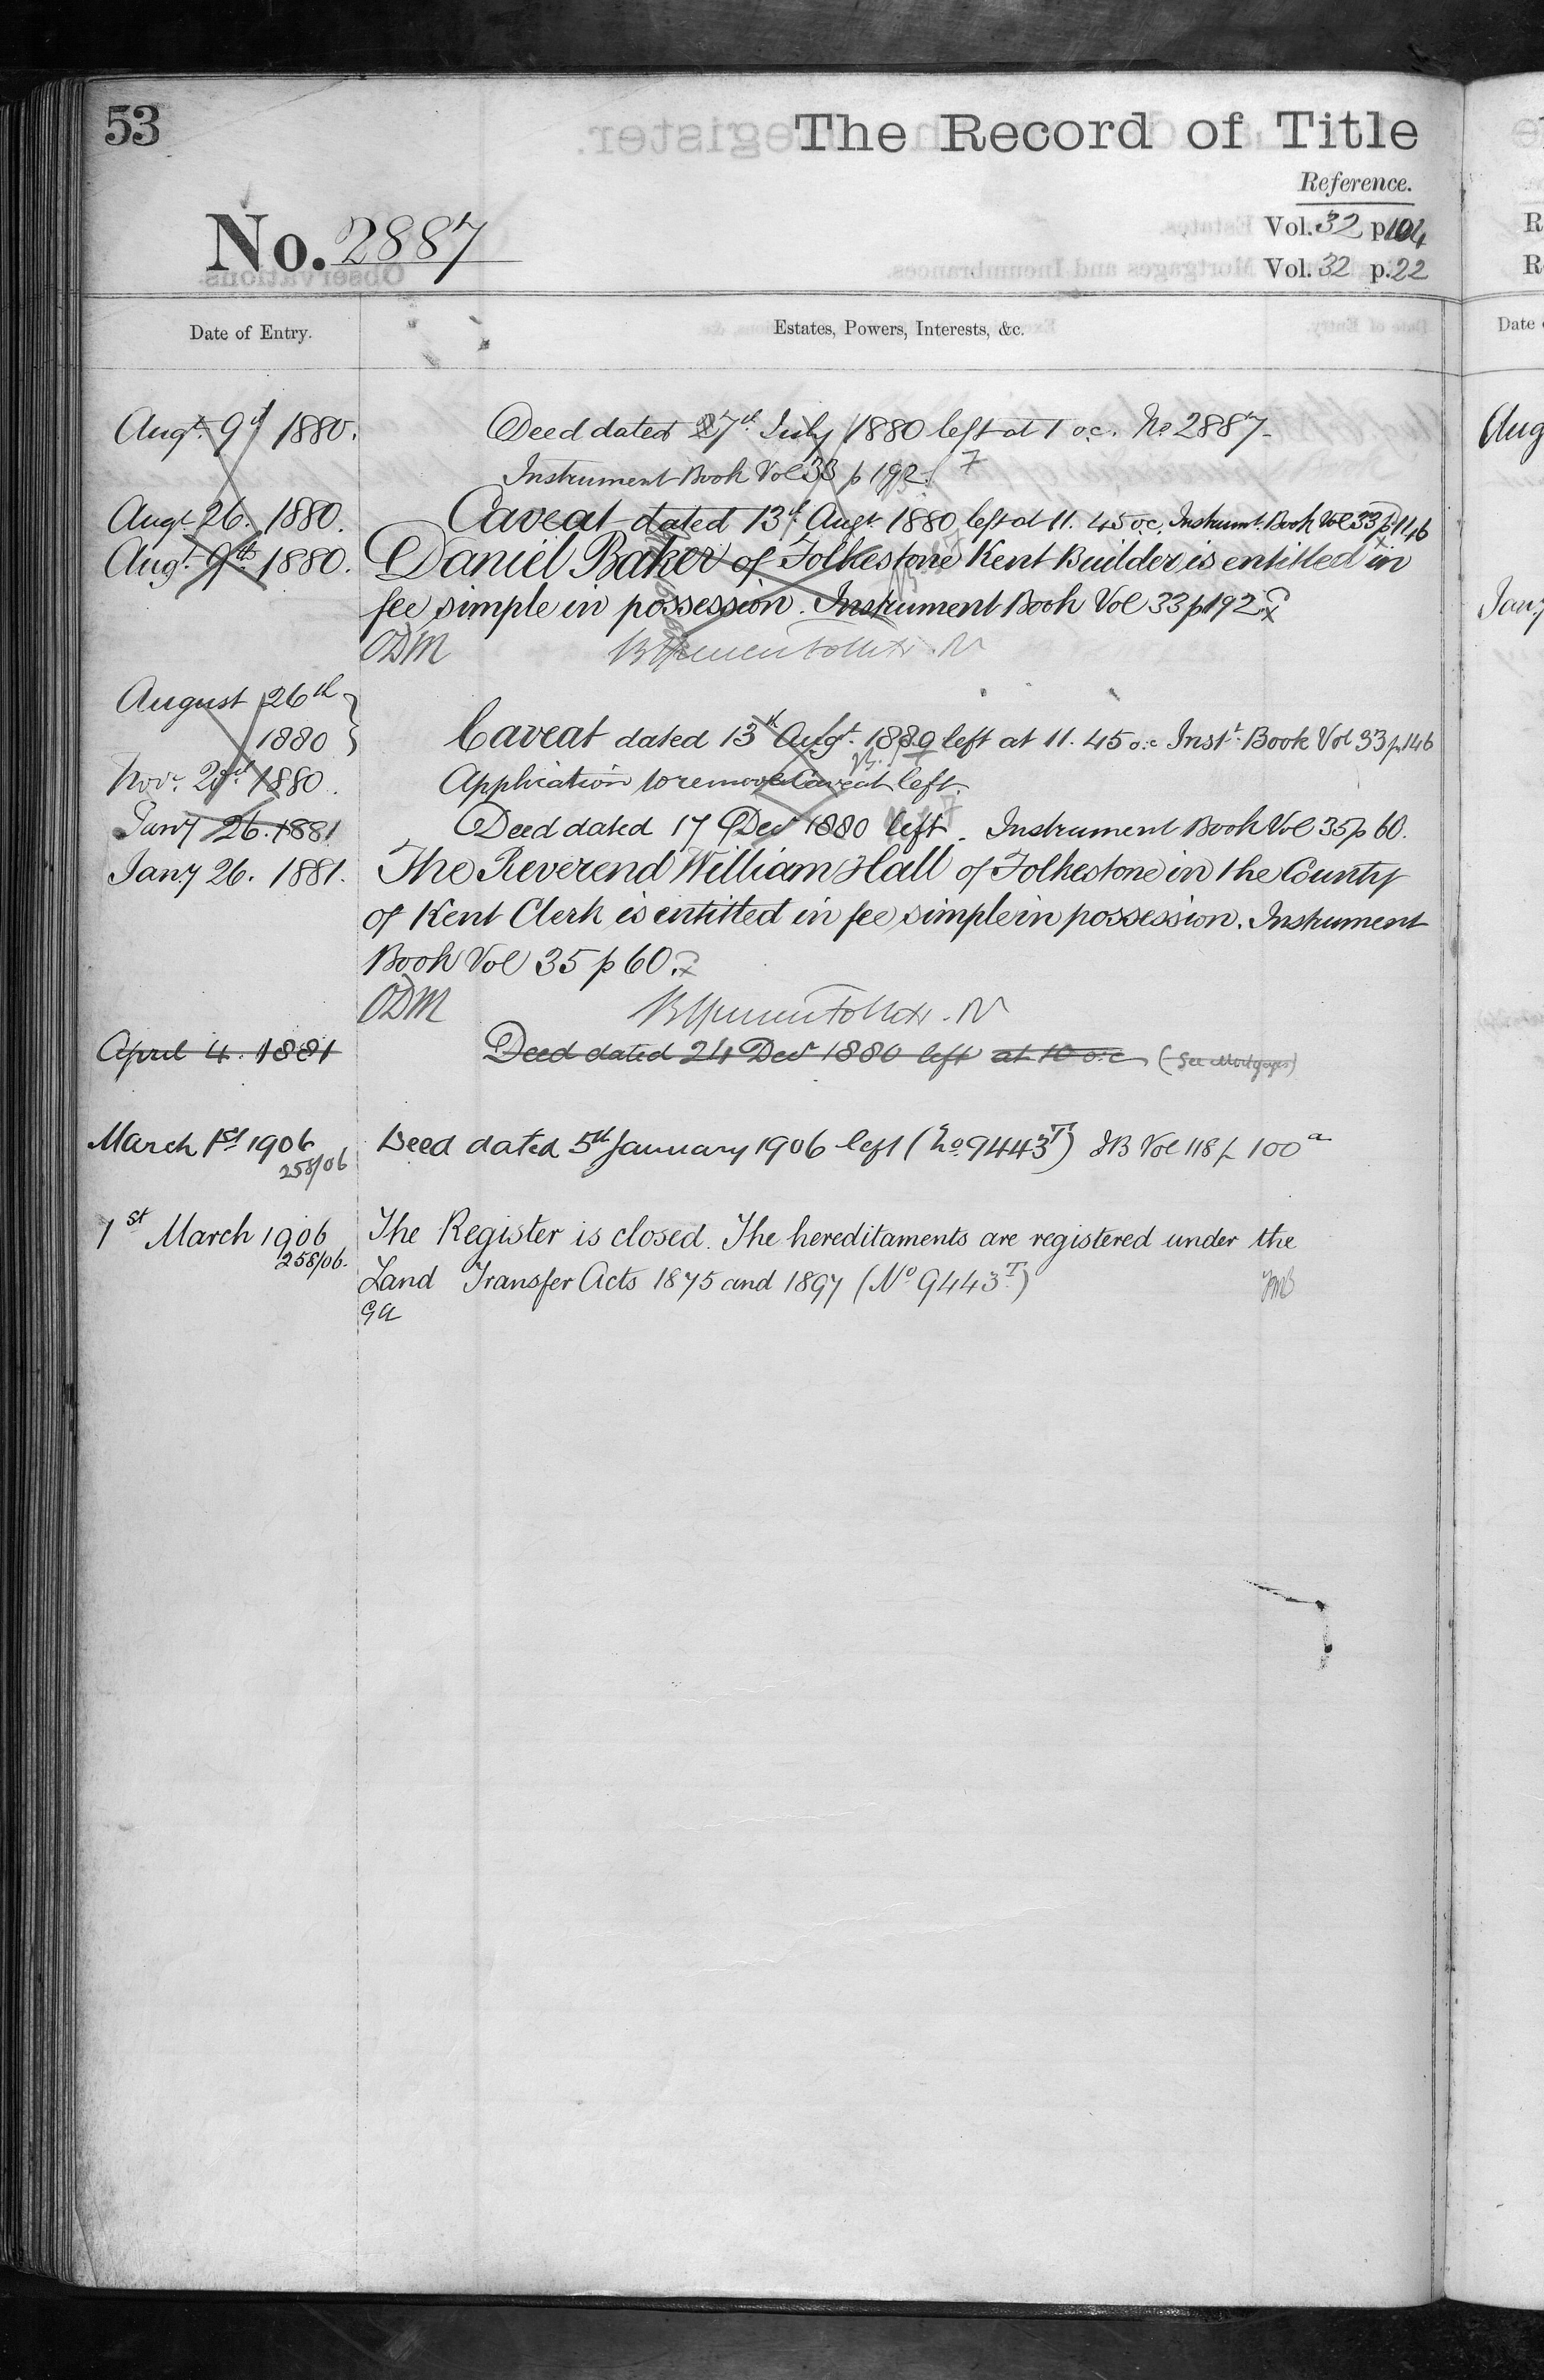 53
The Record of Title
Reference.
No. 2887
Vol. 32 p. 104
Vol. 32 p. 22
Date of Entry.
Estates, Powers, Interests, &c.
Augt. 9th 1880. Deed dated 27th July 1880 left at 1 o.c. No 2887
Instrument Book Vol 33 p 192
Augt. 26. 1880. Caveat dated 13th Augt 1880 left at 11.45 o.c. Instrumt. Book Vol 33 p. 146
Augt. 9th 1880. Daniel Baker of Folkestone Kent Builder is entitled in
fee simple in possession. Instrument Book Vol 33 p 192
ODM
August 26th
1880 Caveat dated 13th Augt. 1880 left at 11.45 o.c Inst. Book Vol 33 p. 146
Application to remove Caveat left.
Jany 26. 1881 Deed dated 17 Decr 1880 left. Instrument Book Vol 35 p 60.
Jany 26. 1881. The Reverend William Hall of Folkestone in the County
of Kent Clerk is entitled in fee simple in possession. Instrument
Book Vol 35 p 60.
ODM
April 4. 1881 Deed dated 24 Decr 1880 left at 10 o.c (See Mortgages)
March 1st 1906 Deed dated 5th January 1906 left (No 9443T) IB Vol 118 p 100a
258/06
1st March 1906 The Register is closed. The hereditaments are registered under the
258/06.
Land Transfer Acts 1875 and 1897 (No 9443T)
GA